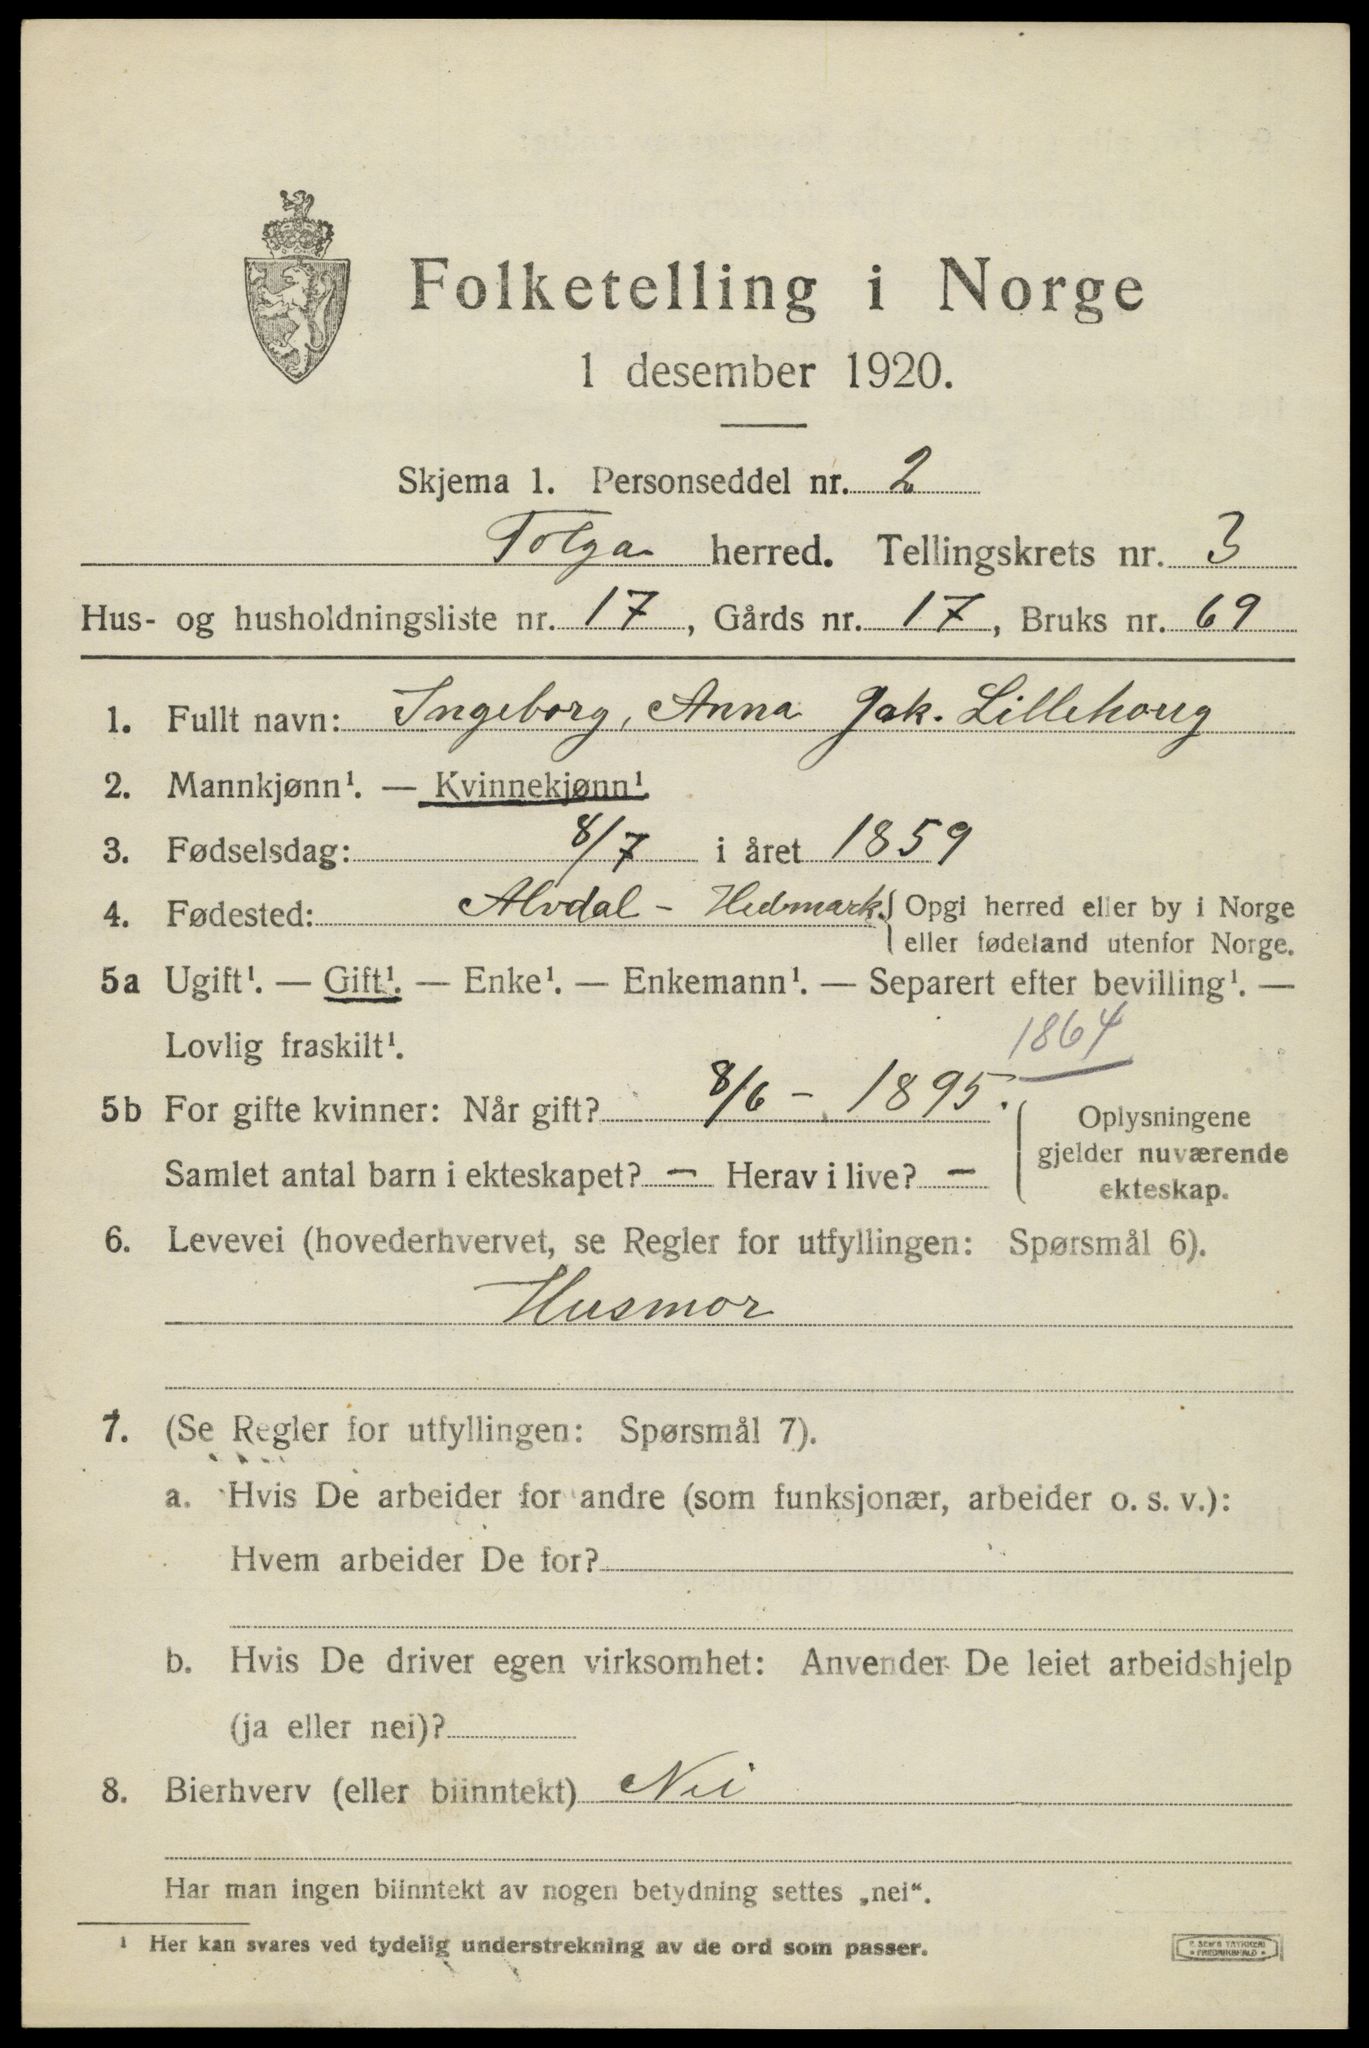 Folketelling i Norge
1 desember 1920.
Skjema 1. Personseddel nr. 2
Tolga herred. Tellingskrets nr. 3
Hus- og husholdningsliste nr. 17, Gårds nr. 17, Bruks nr. 69
1. Fullt navn: Ingeborg, Anna Jak. Lillehoug
2. Mannkjønn¹. — Kvinnekjønn¹.
3. Fødselsdag: 8/7 i året 1859
4. Fødested: Alvdal - Hedmark. { Opgi herred eller by i Norge
eller fødeland utenfor Norge.
5a Ugift¹. — Gift¹. — Enke¹. — Enkemann¹. — Separert efter bevilling¹. —
Lovlig fraskilt¹.
1864
5b For gifte kvinner: Når gift? 8/6 - 1895.
Samlet antal barn i ekteskapet? — Herav i live? —
Oplysningene
gjelder nuværende
ekteskap.
6. Levevei (hovederhvervet, se Regler for utfyllingen: Spørsmål 6).
Husmor
7. (Se Regler for utfyllingen: Spørsmål 7).
a. Hvis De arbeider for andre (som funksjonær, arbeider o. s. v.):
Hvem arbeider De for?
b. Hvis De driver egen virksomhet: Anvender De leiet arbeidshjelp
(ja eller nei)?
8. Bierhverv (eller biinntekt) Nei
Har man ingen biinntekt av nogen betydning settes „nei“.
¹ Her kan svares ved tydelig understrekning av de ord som passer.
FREDRIKSHALD